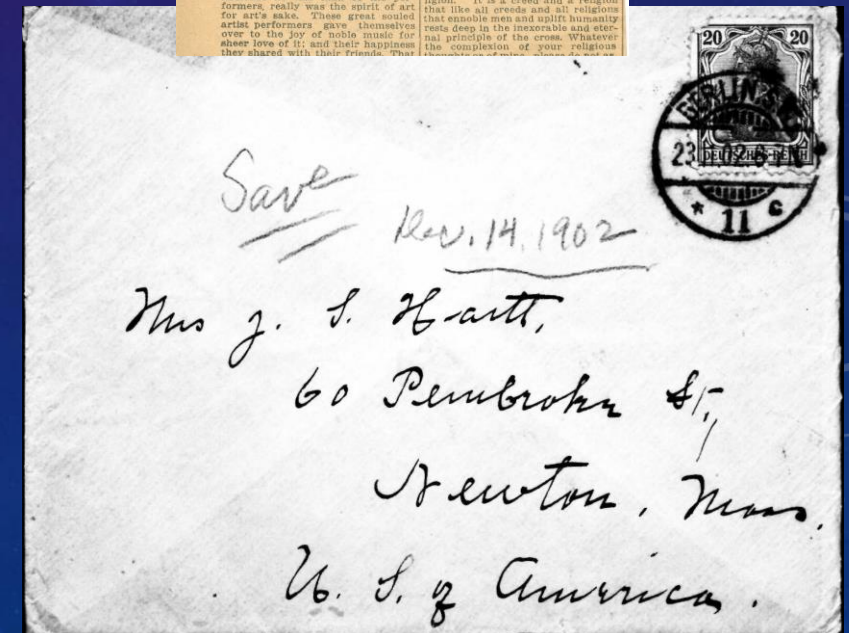 formers, really was the spirit of art
for art's sake. These great souled
artist performers gave themselves
over to the joy of noble music for
sheer love of it; and their happiness
they shared with their friends. That
ligion. It is a creed and a religion
that like all creeds and all religions
that ennoble men and uplift humanity
rests deep in the inexorable and eter-
nal principle of the cross. Whatever
the complexion of your religious
20 20
DEUTSCHES REICH
BERLIN
23
* 11 c
Save
Nov. 14, 1902
Mrs J. S. Hartt,
60 Pembroke St,
Newton, Mass.
U. S. of America.